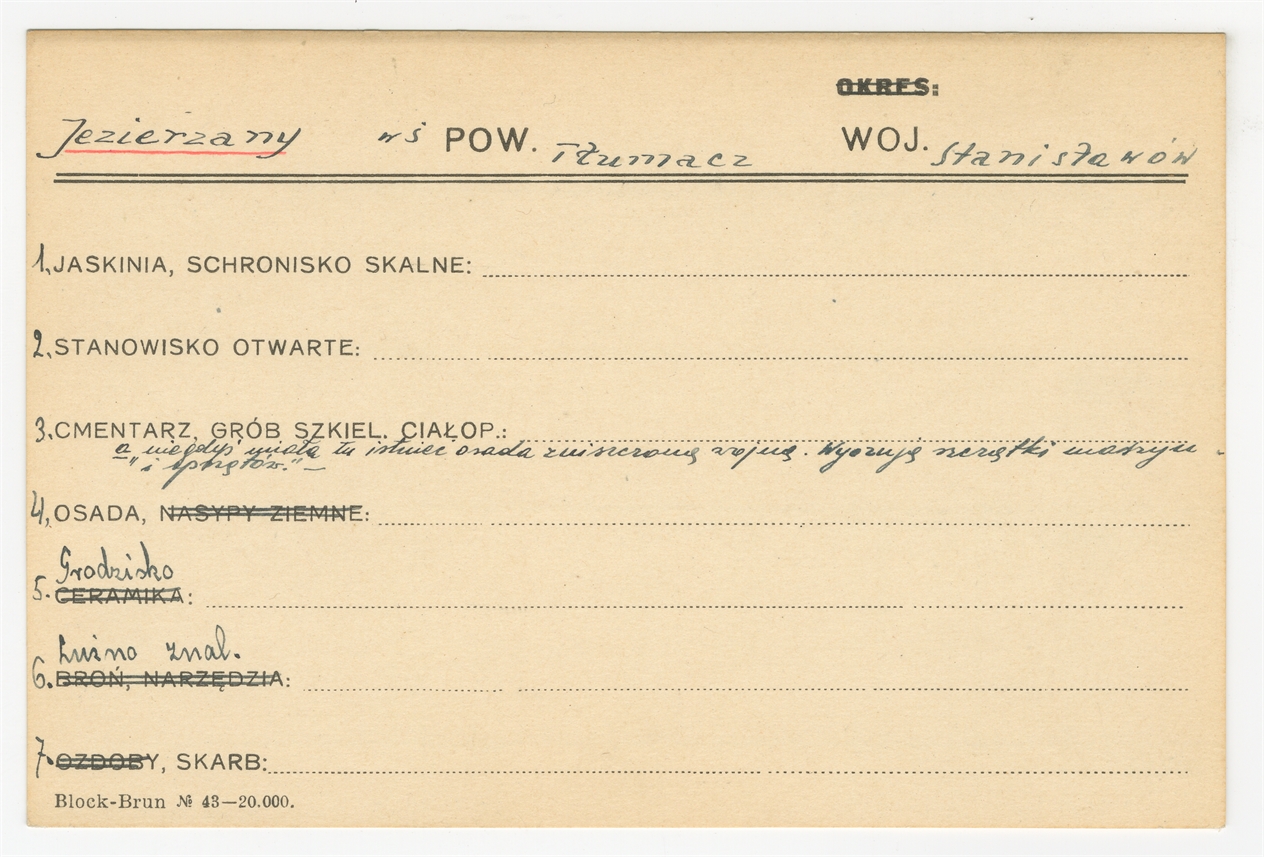 OKRES:
Jezierzany wś POW. Tłumacz WOJ. Stanisławów
1. JASKINIA, SCHRONISKO SKALNE:
2. STANOWISKO OTWARTE:
3. CMENTARZ, GRÓB SZKIEL. CIAŁOP.:
a „niegdyś miała tu istnieć osada zniszczona wojną. Wyorują szczątki
i sprzętów." —
4. OSADA, NASYPY ZIEMNE:
Grodzisko
5. CERAMIKA:
Luźno znal.
6. BROŃ, NARZĘDZIA:
7. OZDOBY, SKARB:
Block-Brun № 43—20.000.